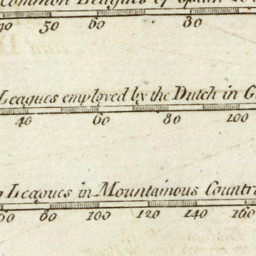 Common Leagues of
50 60 80
Leagues employed by the Dutch in G
40 60 80 100
Leagues in Mountainous Countr
60 80 100 120 140 160